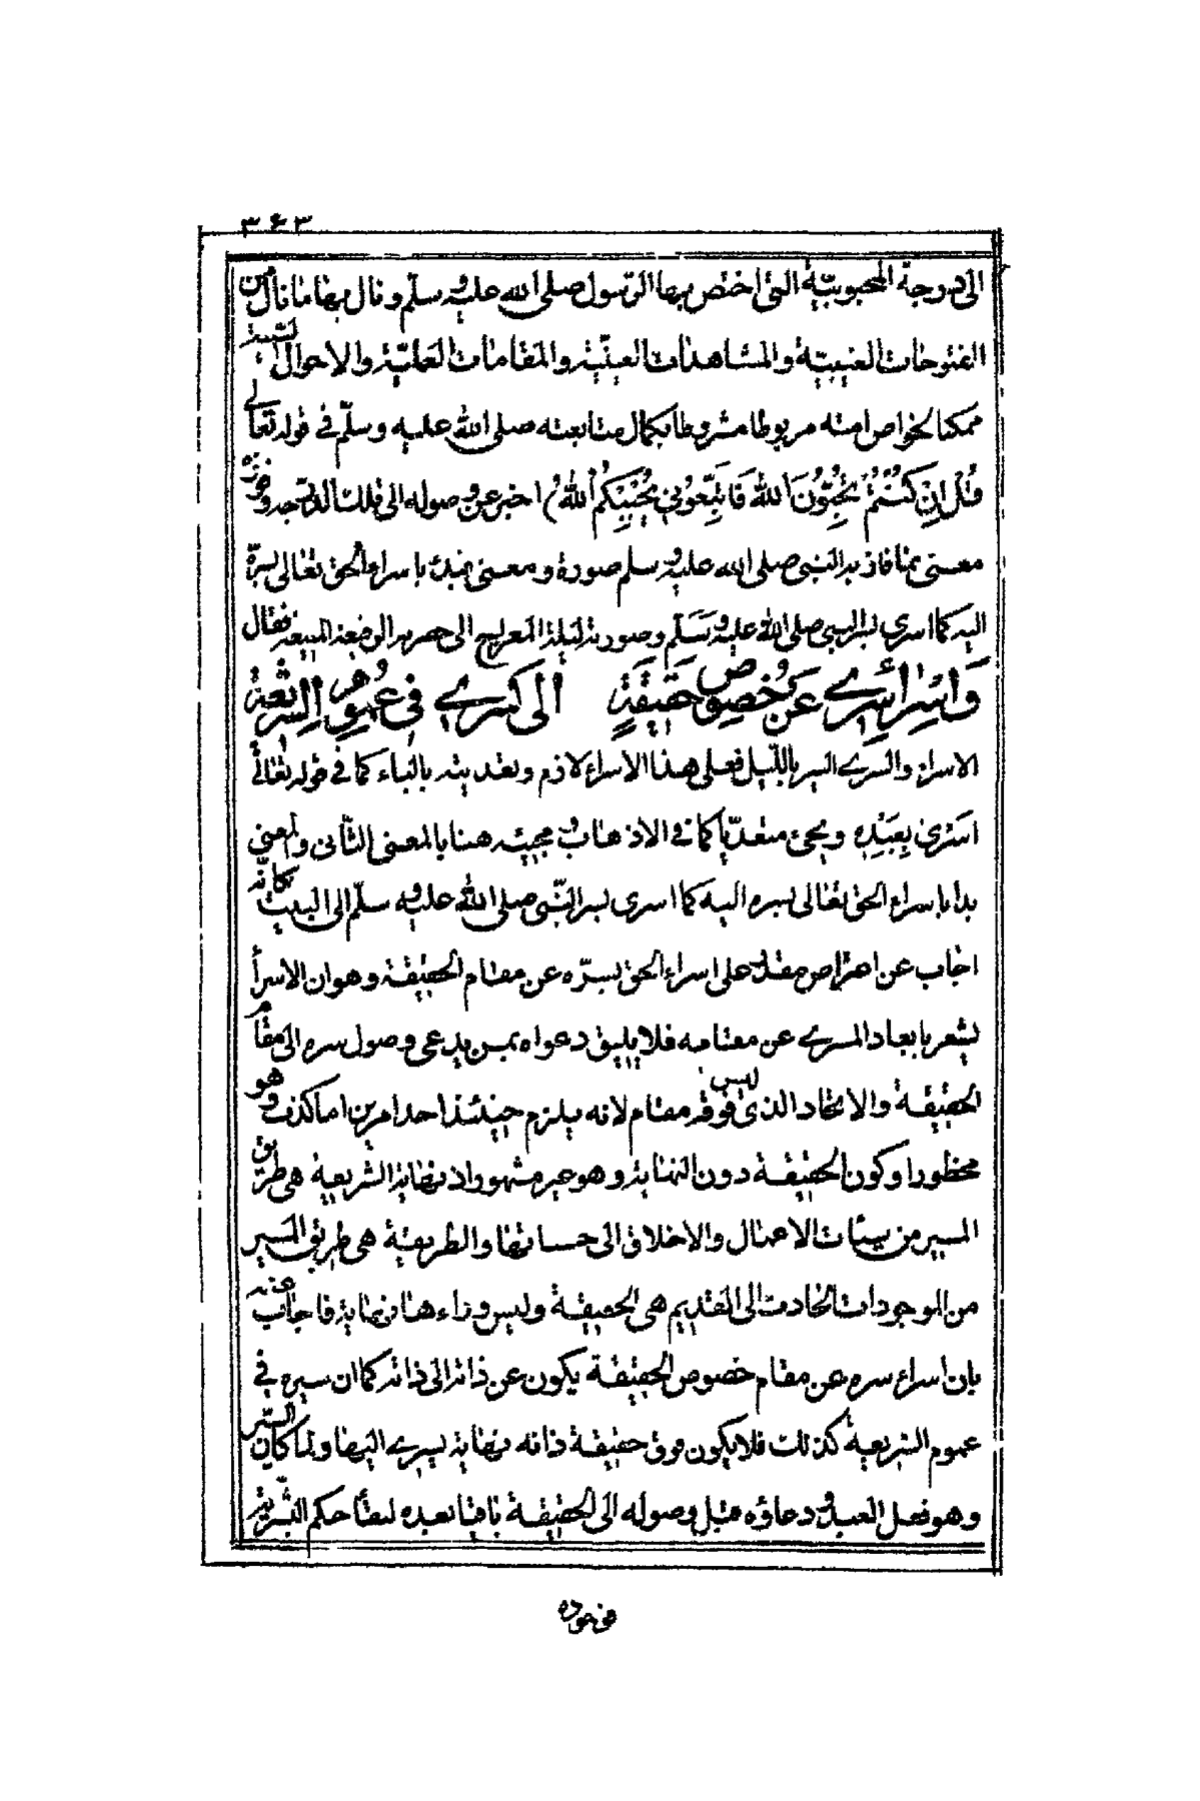 ٣٦٣
الى درجة المحبوبيّة التى اختص بها الرّسول صلى الله عليه وسلّم ونال بها ما نال من
الفتوحات الغيبيّة والمشاهدات العينيّة والمقامات العليّة والاحوال السّنية
ممكنا لخواص امته مربوطا مشروطا بكمال متابعته صلى الله عليه وسلّم فى قوله تعالى
قُلْ اِنْ كُنْتُمْ تُحِبُّونَ اللهَ فَاتَّبِعُونِى يُحْبِبْكُمُ اللهُ اخبر عن وصوله الى تلك الدرجة وفوزه
معنى بما فاز به النبى صلى الله عليه وسلم صورة ومعنى مبتدأ باسراء الحق تعالى بسرّه
اليه كما اسرى بسر النبى صلى الله عليه وَسَلّم وصورته ليلة المعراج الى حضرته الرفيعة المنيعة فقال
وَاَسْرَاءُ سِرّى عَنْ خُصُوصِ حَقِيقَةٍ الَىَّ كَسَيْرى فِى عُمُومِ الشَّرِيعَةِ
الاسراء والسرى السير بالليل فعلى هذا الاسراء لازم وتعديته بالباء كما فى قوله تعالى
اَسْرٰى بِعَبْدِهِ ويجئ متعدّيا كما فى الاذهاب ومجيئه هنا بالمعنى الثّانى والمعنى
بدا باسراء الحق تعالى بسره اليه كما اسرى بسر النّبى صلى الله عليه وسلّم الى البيت فكانّه
اجاب عن اعتراض مقدّر على اسراء الحق بسرّه عن مقام الحقيقة وهو ان الاسراء
يشعر بابعاد المسرى عن مقامه فلا يليق دعواه بمن يدعى وصول سره الى مقام
الحقيقة والاتحاد الذى ليس فوقه مقام لانه يلزم حينئذ احد امرين اما كذب وهو
محظور او كون الحقيقة دون النهاية وهو غير مشهور اذ نهاية الشريعة هى طريق
المسير من سيئات الاعمال والاخلاق الى حسناتها والطريقة هى طريق السير
من الموجودات الحادث الى القديم هى الحقيقة وليس وراءها نهاية فاجاب عنه
بان اسراء سره عن مقام خصوص الحقيقة يكون عن ذاته الى ذاته كما ان سيره فى
عموم الشريعة كذلك فلا يكون فوق حقيقة ذاته نهاية يسرى اليها ولما كان السّير
وهو فعل العبد ودعاؤه قبل وصوله الى الحقيقة باقيا بعده لبقاء حكم البشرية